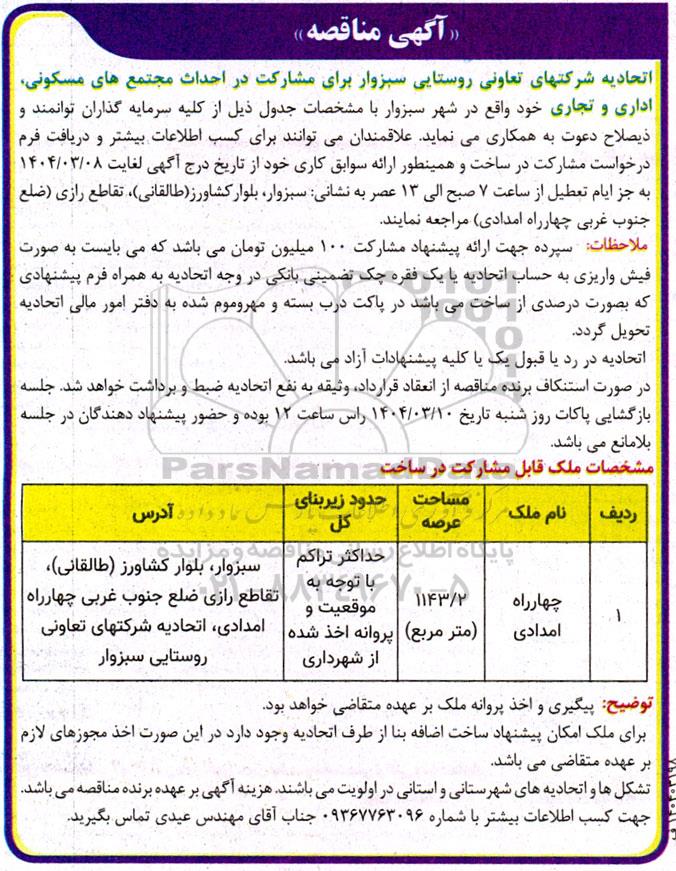 «آگهی مناقصه»
اتحادیه شرکتهای تعاونی روستایی سبزوار برای مشارکت در احداث مجتمع های مسکونی،
اداری و تجاری خود واقع در شهر سبزوار با مشخصات جدول ذیل از کلیه سرمایه گذاران توانمند و
ذیصلاح دعوت به همکاری می نماید. علاقمندان می توانند برای کسب اطلاعات بیشتر و دریافت فرم
درخواست مشارکت در ساخت و همینطور ارائه سوابق کاری خود از تاریخ درج آگهی لغایت ۱۴۰۴/۰۳/۰۸
به جز ایام تعطیل از ساعت ۷ صبح الی ۱۳ عصر به نشانی: سبزوار، بلوارکشاورز(طالقانی)، تقاطع رازی (ضلع
جنوب غربی چهارراه امدادی) مراجعه نمایند.
ملاحظات: سپرده جهت ارائه پیشنهاد مشارکت ۱۰۰ میلیون تومان می باشد که می بایست به صورت
فیش واریزی به حساب اتحادیه یا یک فقره چک تضمینی بانکی در وجه اتحادیه به همراه فرم پیشنهادی
که بصورت درصدی از ساخت می باشد در پاکت درب بسته و مهروموم شده به دفتر امور مالی اتحادیه
تحویل گردد.
اتحادیه در رد یا قبول یک یا کلیه پیشنهادات آزاد می باشد.
در صورت استنکاف برنده مناقصه از انعقاد قرارداد، وثیقه به نفع اتحادیه ضبط و برداشت خواهد شد. جلسه
بازگشایی پاکات روز شنبه تاریخ ۱۴۰۴/۰۳/۱۰ راس ساعت ۱۲ بوده و حضور پیشنهاد دهندگان در جلسه
بلامانع می باشد.
ParsNamadData
مشخصات ملک قابل مشارکت در ساخت
ردیف نام ملک مساحت عرصه حدود زیربنای کل آدرس
۱ چهارراه امدادی ۱۱۴۳/۲ (متر مربع) حداکثر تراکم با توجه به موقعیت و پروانه اخذ شده از شهرداری سبزوار، بلوار کشاورز (طالقانی)، تقاطع رازی ضلع جنوب غربی چهارراه امدادی، اتحادیه شرکتهای تعاونی روستایی سبزوار
پایگاه اطلاع رسانی مناقصه و مزایده
۰۲۱-۸۸۳۴۹۶۷۰-۵
توضیح: پیگیری و اخذ پروانه ملک بر عهده متقاضی خواهد بود.
برای ملک امکان پیشنهاد ساخت اضافه بنا از طرف اتحادیه وجود دارد در این صورت اخذ مجوزهای لازم
بر عهده متقاضی می باشد.
تشکل ها و اتحادیه های شهرستانی و استانی در اولویت می باشند. هزینه آگهی بر عهده برنده مناقصه می باشد.
جهت کسب اطلاعات بیشتر با شماره ۰۹۳۶۷۷۶۳۰۹۶ جناب آقای مهندس عیدی تماس بگیرید.